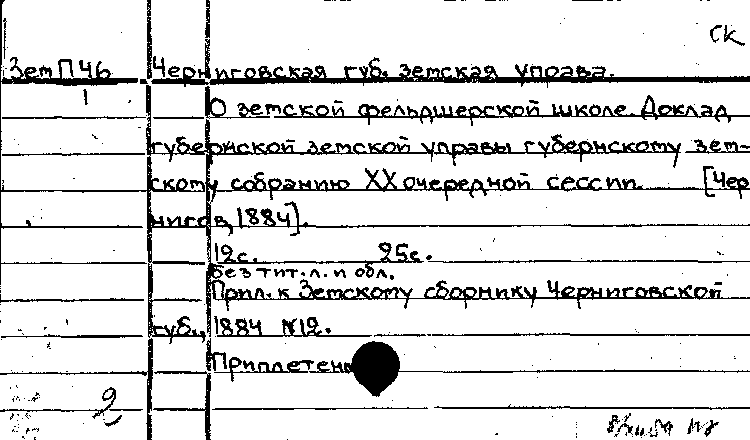 СК
Зем П 46 Черниговская губ. земская управа.
1
О земской фельдшерской школе. Доклад
губернской земской управы губернскому зем-
скому собранию XX очередной сессии. [Чер
нигов, 1884].
12с. 25с.
Без тит. л. и обл.
Прил. к Земскому сборнику Черниговской
губ., 1884 №12.
Приплетен
2